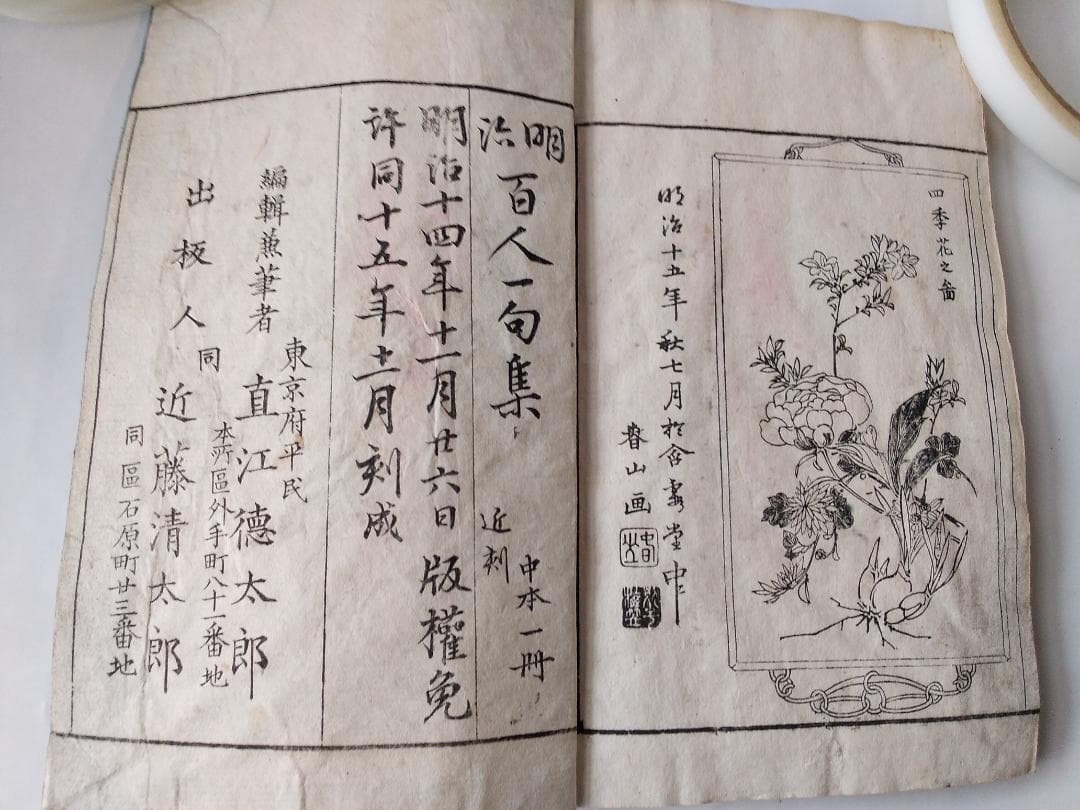 四季花之啚
明治十五年秋七月於含雪堂中
春山画
明治百人一句集
近刻
中本一冊
明治十四年十一月廿六日版權免
許同十五年十二月刻成
編輯兼筆者
東京府平民
直江德太郎
本所區外手町八十一番地
出板人
同
近藤清太郎
同區石原町廿三番地